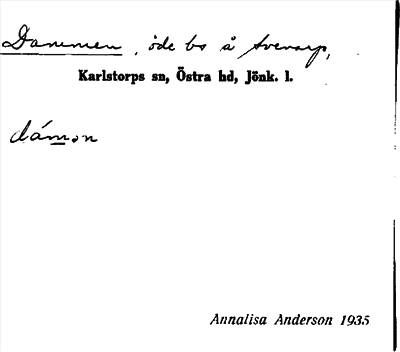 Danemen, öde bs å Svenarp,
Karlstorps sn, Östra hd, Jönk. l.
dámən
Annalisa Anderson 1935